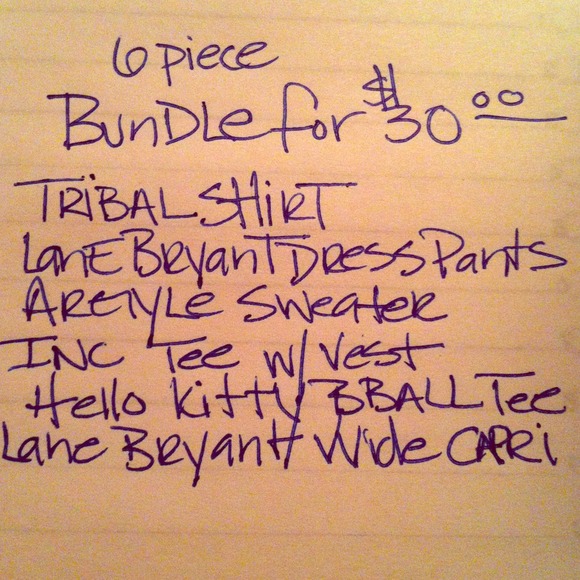 6 piece
BunDLe for $30 00
TRiBAL SHiRT
LanE BRyanT DRess Pants
ARGYLe Sweater
INC Tee w/ Vest
Hello Kitty BBALL Tee
Lane Bryant Wide CAPRi